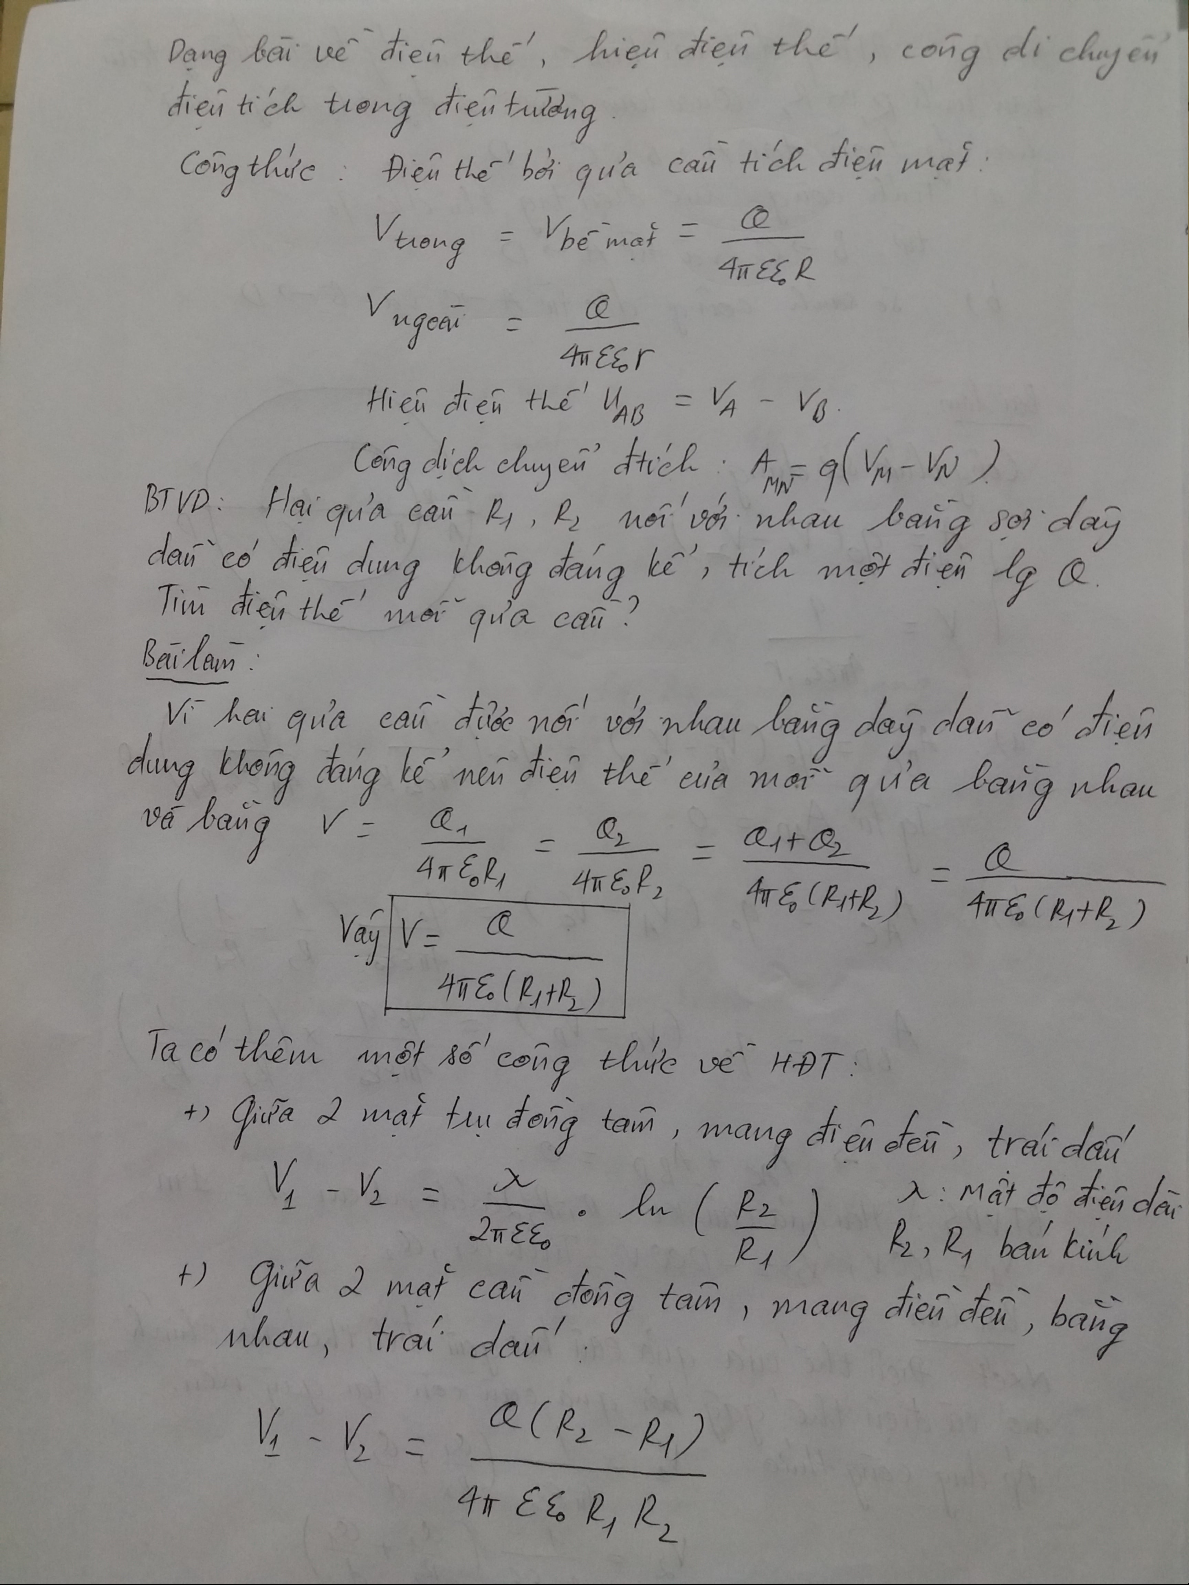 Dạng bài về điện thế, hiệu điện thế, công di chuyển
điện tích trong điện trường.
Công thức : Điện thế bởi quả cầu tích điện mặt :
V trong = V bề mặt = Q / 4πεε₀R
V ngoài = Q / 4πεε₀r
Hiệu điện thế U_AB = V_A - V_B.
Công dịch chuyển đtích : A_MN = q(V_M - V_N).
BTVD: Hai quả cầu R₁, R₂ nối với nhau bằng sợi dây
dẫn có điện dung không đáng kể, tích một điện lg Q.
Tìm điện thế mỗi quả cầu?
Bài làm :
Vì hai quả cầu được nối với nhau bằng dây dẫn có điện
dung không đáng kể nên điện thế của mỗi quả bằng nhau
và bằng V = Q₁ / 4πε₀R₁ = Q₂ / 4πε₀R₂ = Q₁+Q₂ / 4πε₀(R₁+R₂) = Q / 4πε₀(R₁+R₂)
Vậy V = Q / 4πε₀(R₁+R₂)
Ta có thêm một số công thức về HĐT :
+) Giữa 2 mặt trụ đồng tâm, mang điện đều, trái dấu
V₁ - V₂ = λ / 2πεε₀ . ln (R₂ / R₁) λ : Mật độ điện dài
R₂, R₁ bán kính
+) Giữa 2 mặt cầu đồng tâm, mang điện đều, bằng
nhau, trái dấu :
V₁ - V₂ = Q(R₂ - R₁) / 4πεε₀ R₁ R₂